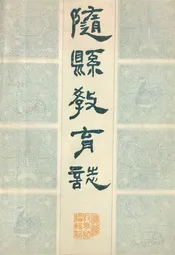 隨縣教育誌